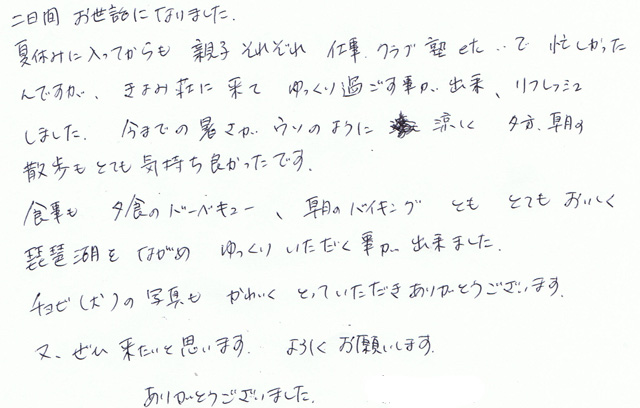 二日間 お世話になりました.
夏休みに入ってからも 親子それぞれ 仕事.クラブ 塾 etc...で 忙しかった
んですが、きよみ荘に来て ゆっくり過ごす事が 出来、リフレッシュ
しました. 今までの暑さが ウソのように 涼しく 夕方.朝の
散歩もとても気持ち良かったです.
食事も 夕食のバーベキュー、朝のバイキング とも とても おいしく
琵琶湖を ながめ ゆっくり いただく事が 出来ました.
チョビ(犬)の写真も かわいく とっていただき ありがとうございます.
又、ぜひ 来たいと思います. よろしく お願いします.
ありがとうございました.